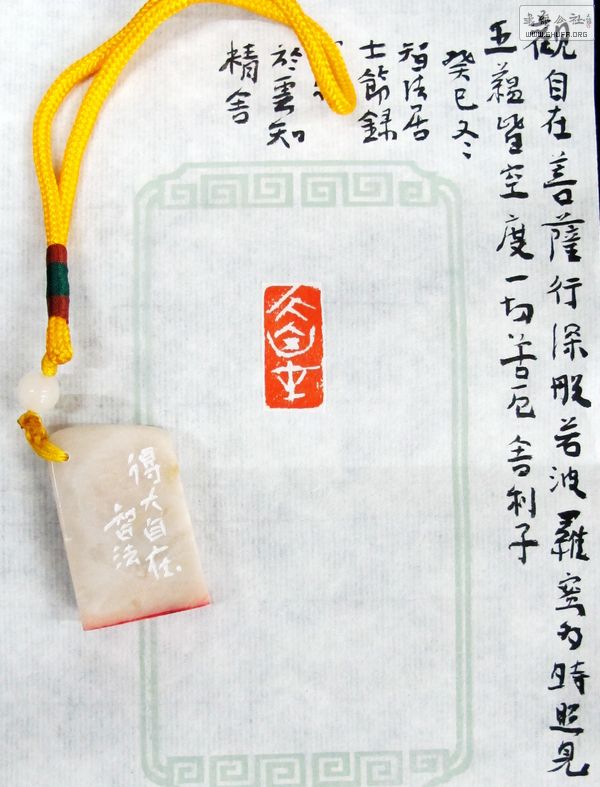 觀自在菩薩行深般若波羅蜜多時照見
五蘊皆空度一切苦厄舍利子
癸巳冬
智法居
士節録
於雲知
精舍
大自在
得大自在.
智法